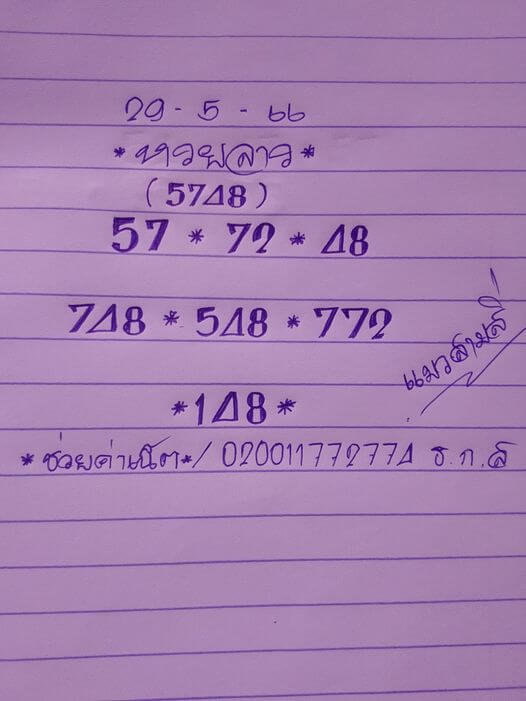 29-5-66
*หวยลาว*
(5748)
57*72*48
748*548*772
แมวสามสี
*148*
*ช่วยค่าเน็ต*/020011772774 ธ.ก.ส